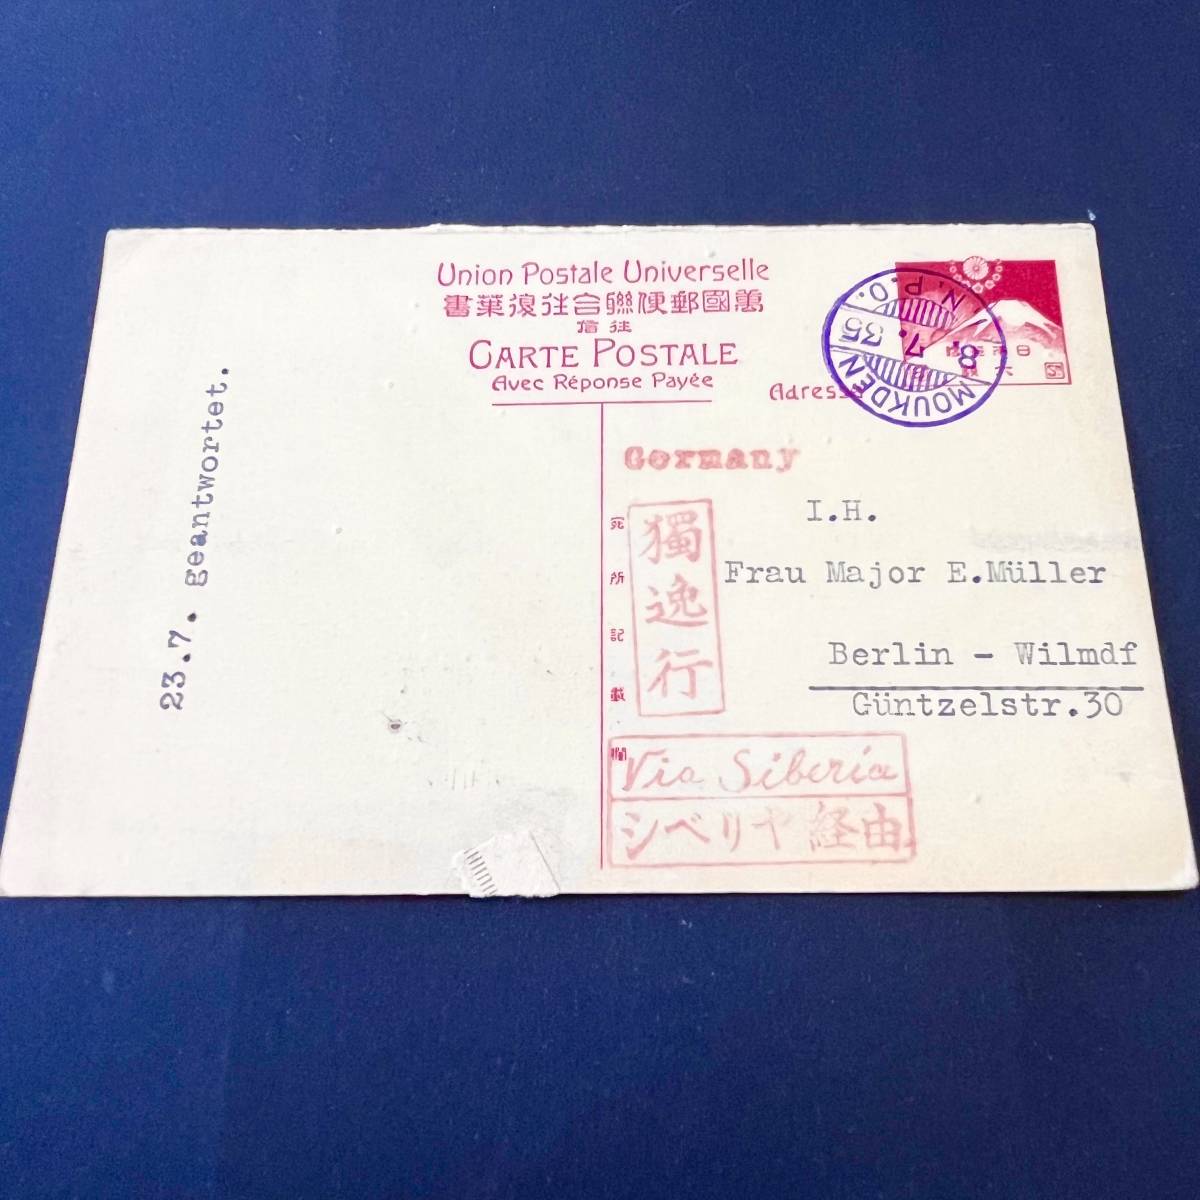 Union Postale Universelle
書葉復往合聯便郵國萬
信往
CARTE POSTALE
Avec Réponse Payée
Adresse
MOUKDEN
8. 7. 35
I.N.P.O.
日本
Germany
獨逸行
宛所記載欄
I.H.
Frau Major E.Müller
Berlin - Wilmdf
Güntzelstr.30
Via Siberia
シベリヤ経由
23.7. geantwortet.